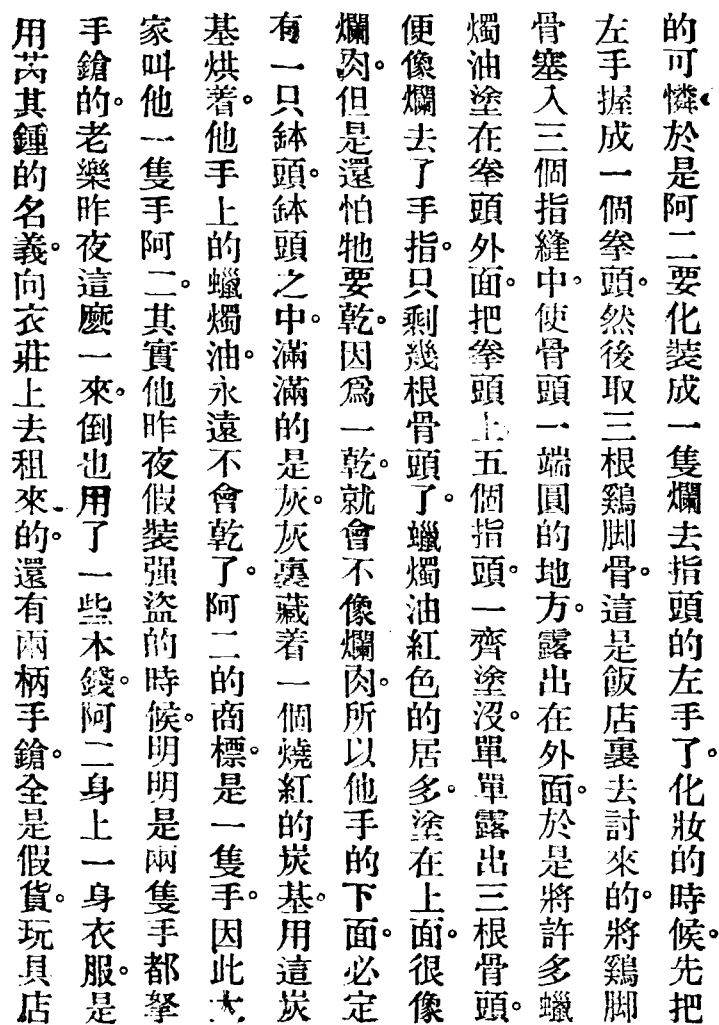 的可憐。於是阿二要化裝成一隻爛去指頭的左手了。化妝的時候。先把
左手握成一個拳頭。然後取三根鷄脚骨。這是飯店裏去討來的。將鷄脚
骨塞入三個指縫中。使骨頭一端圓的地方。露出在外面。於是將許多蠟
燭油塗在拳頭外面。把拳頭上五個指頭。一齊塗沒。單單露出三根骨頭。
便像爛去了手指。只剩幾根骨頭了。蠟燭油紅色的居多。塗在上面。很像
爛肉。但是還怕牠要乾。因爲一乾。就會不像爛肉。所以他手的下面。必定
有一只鉢頭。鉢頭之中。滿滿的是灰。灰裏藏着一個燒紅的炭基。用這炭
基烘着。他手上的蠟燭油。永遠不會乾了。阿二的商標。是一隻手。因此大
家叫他一隻手阿二。其實他昨夜假裝强盜的時候。明明是兩隻手都拏
手鎗的。老樂昨夜這麽一來。倒也用了一些本錢。阿二身上一身衣服。是
用芮其鍾的名義。向衣莊上去租來的。還有兩柄手鎗。全是假貨。玩具店